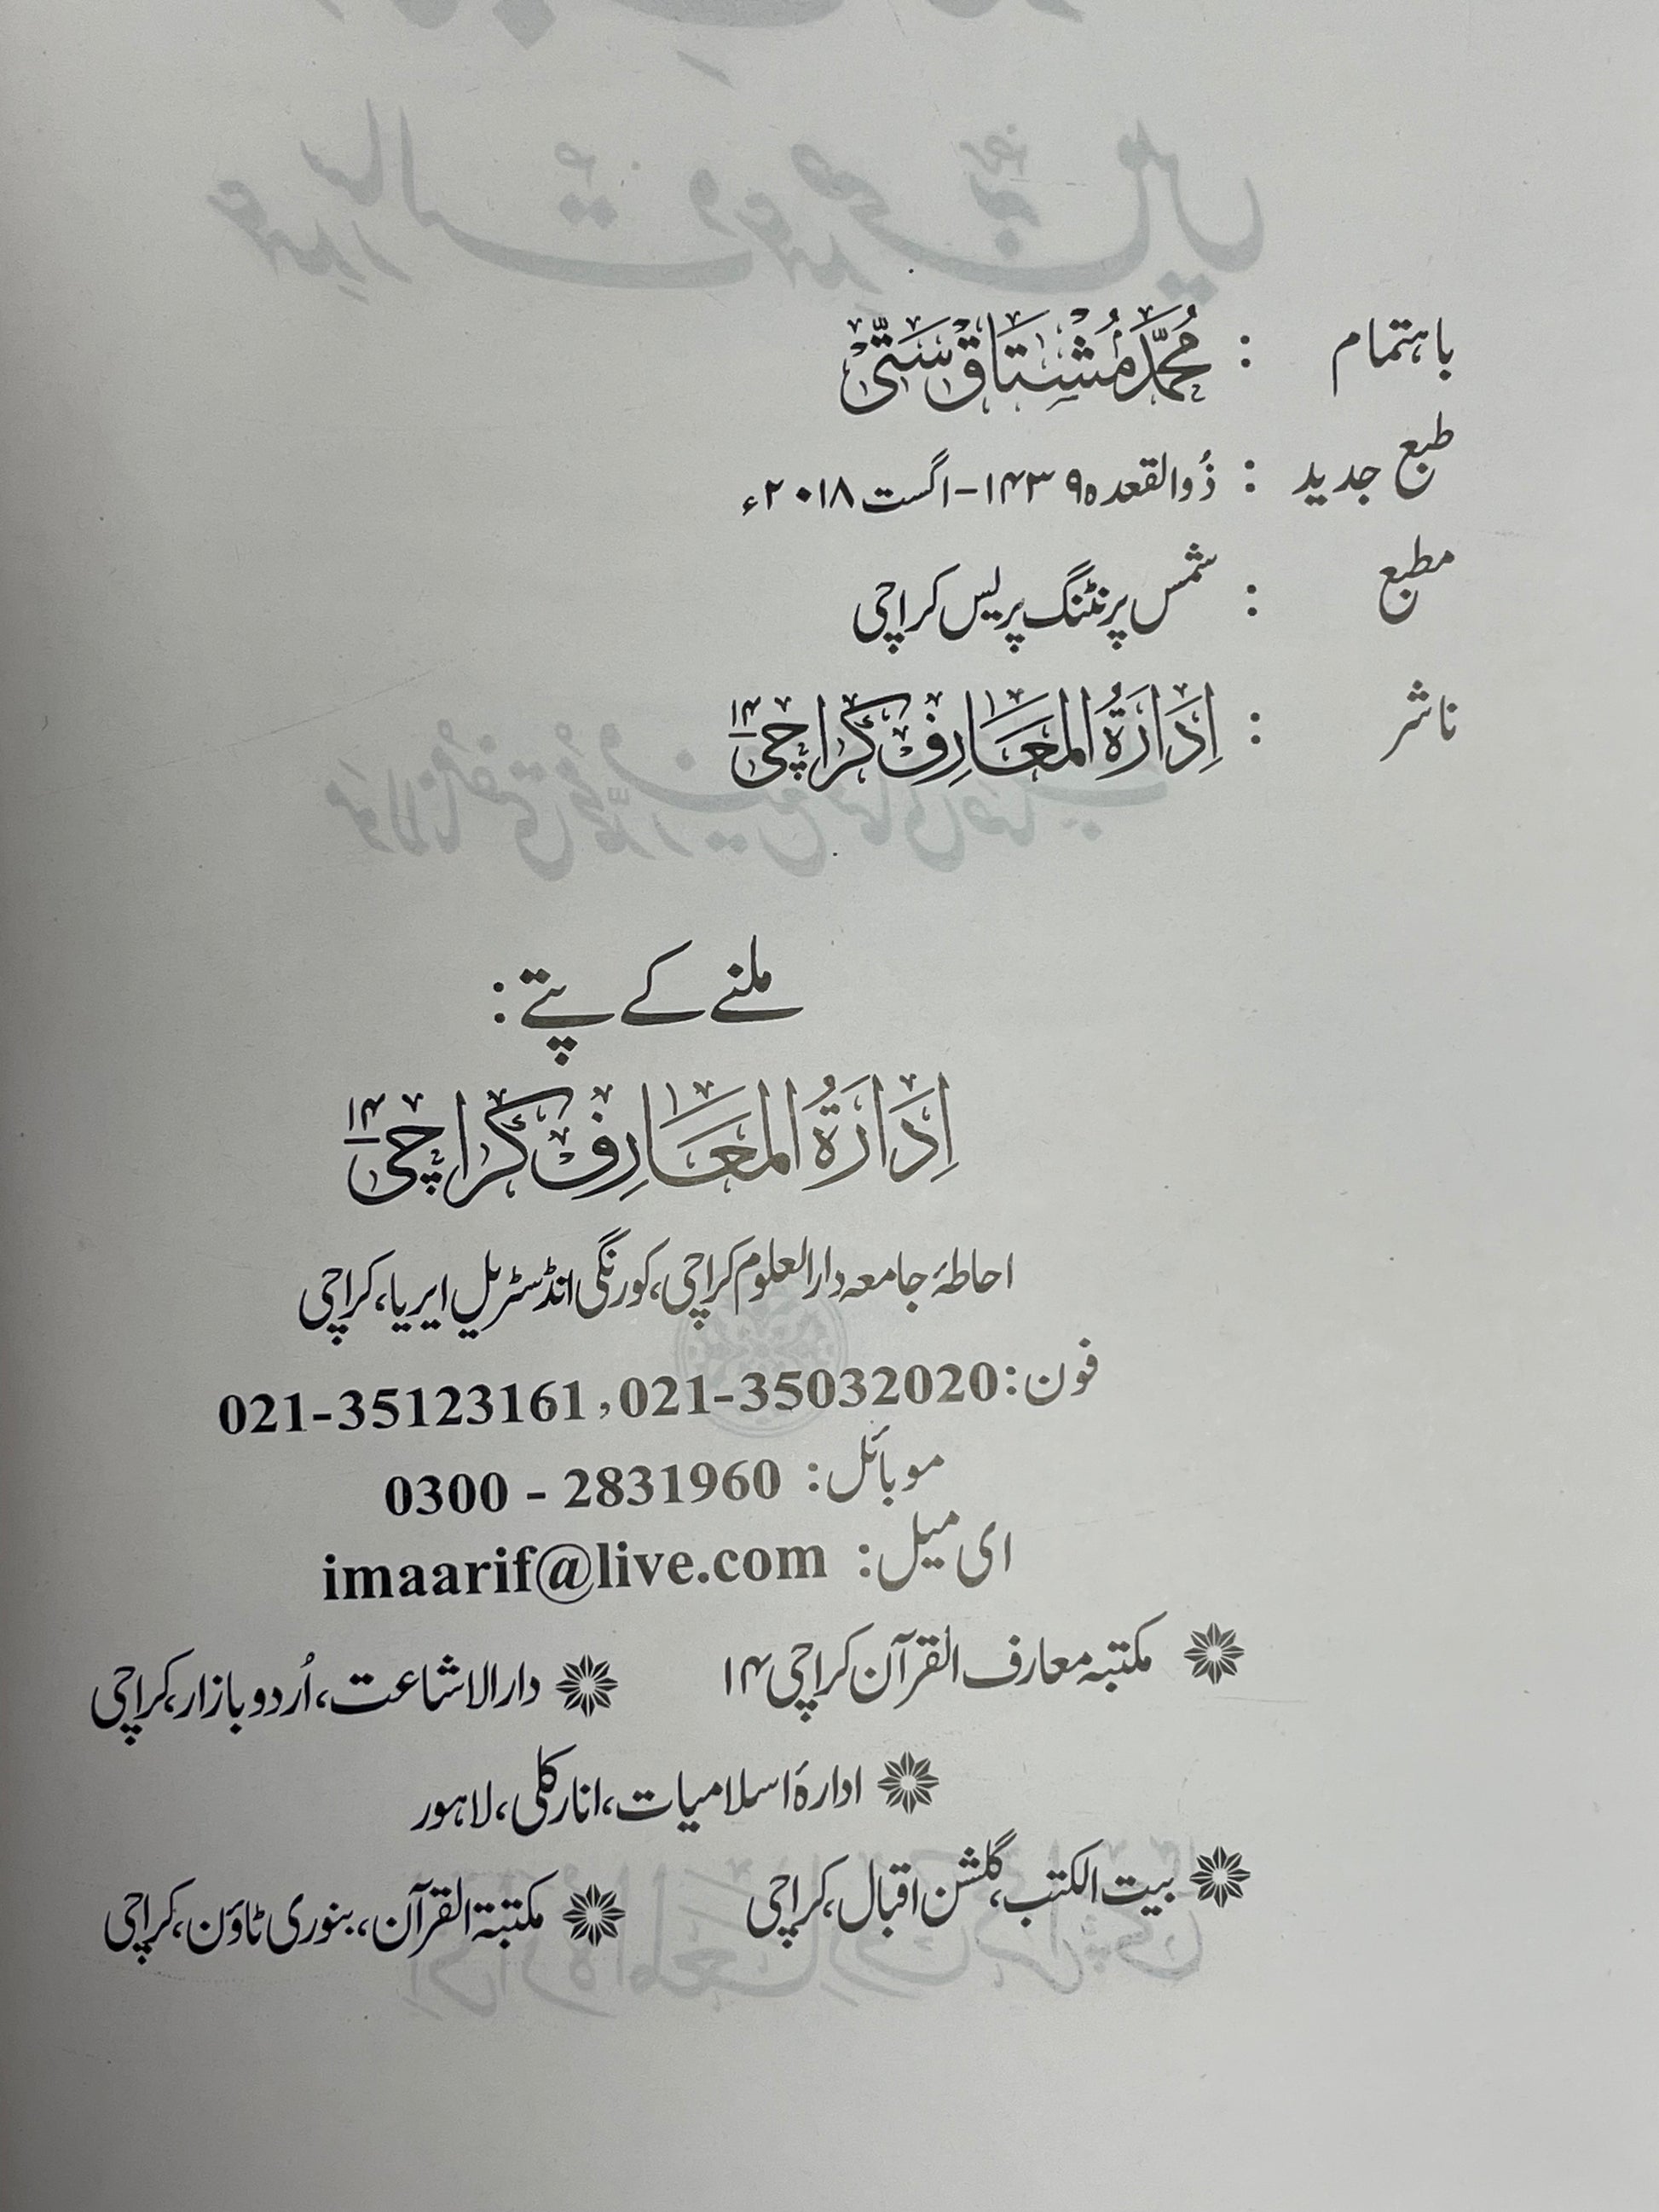 باہتمام : مُحَمَّد مُشْتَاق سَتِّی
طبع جدید : ذُوالقعدہ ۱۴۳۹ھ - اگست ۲۰۱۸ء
مطبع : شمس پرنٹنگ پریس کراچی
ناشر : اِدَارَۃُ المَعَارِف کراچی ۱۴
ملنے کے پتے :
اِدَارَۃُ المَعَارِف کراچی ۱۴
احاطۂ جامعہ دارالعلوم کراچی، کورنگی انڈسٹریل ایریا، کراچی
فون: 021-35123161, 021-35032020
موبائل: 0300 - 2831960
ای میل: imaarif@live.com
مکتبہ معارف القرآن کراچی ۱۴ دارالاشاعت، اُردو بازار، کراچی
ادارۂ اسلامیات، انارکلی، لاہور
بیت الکتب، گلشن اقبال، کراچی مکتبۃ القرآن، بنوری ٹاؤن، کراچی